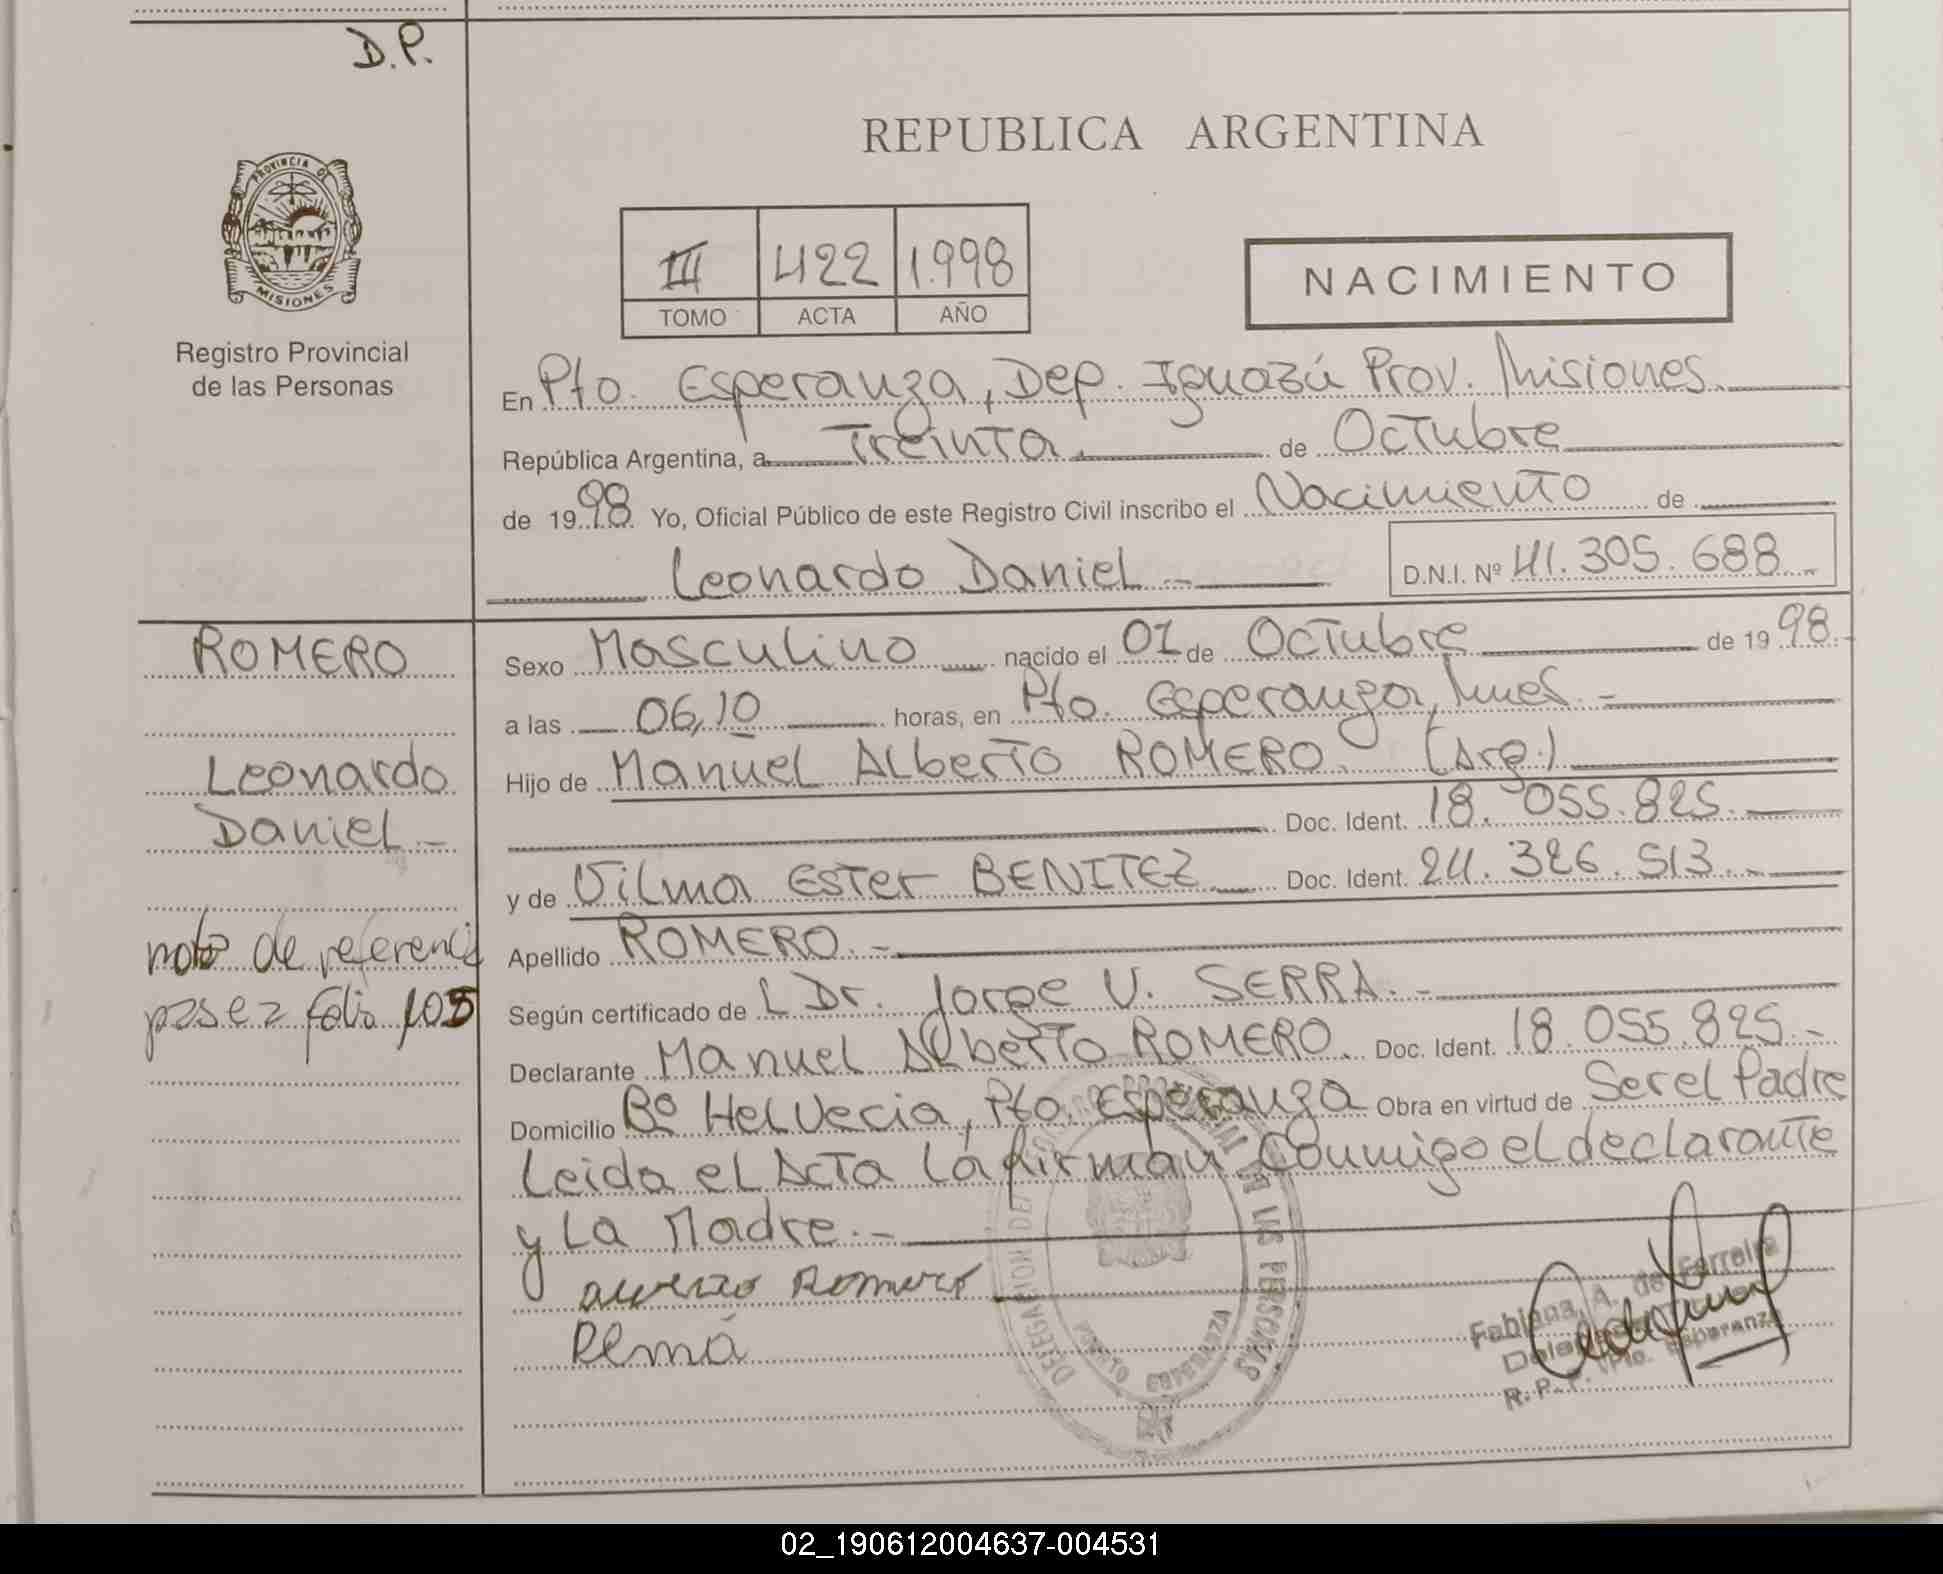 D.P.
PROVINCIA DE
MISIONES
Registro Provincial
de las Personas
REPUBLICA ARGENTINA
III 422 1.998
TOMO ACTA AÑO
NACIMIENTO
En Pto. Esperanza, Dep. Iguazú Prov. Misiones
República Argentina, a Treinta de Octubre
de 1998. Yo, Oficial Público de este Registro Civil inscribo el Nacimiento de
Leonardo Daniel
D.N.I. Nº 41.305.688
ROMERO
Leonardo
Daniel
nota de referencia
pase a folio 105
Sexo Masculino nacido el 01 de Octubre de 1998.
a las 06,10 horas, en Pto. Esperanza, Mnes.
Hijo de Manuel Alberto ROMERO. (Arg.)
Doc. Ident. 18.055.825.
y de Vilma Ester BENITEZ Doc. Ident. 24.326.513.
Apellido ROMERO.
Según certificado de L Dr. Jorge V. SERRA.
Declarante Manuel Alberto ROMERO. Doc. Ident. 18.055.825.
Domicilio Bº Helvecia, Pto. Esperanza Obra en virtud de Ser el Padre
Leida el Acta La firman Conmigo el declarante
y La Madre.
Romero
DELEGACION DE LAS PERSONAS
PUERTO ESPERANZA
Fabiana A. de Ferreira
Pto. Esperanza
R.P.P.
02_190612004637-004531